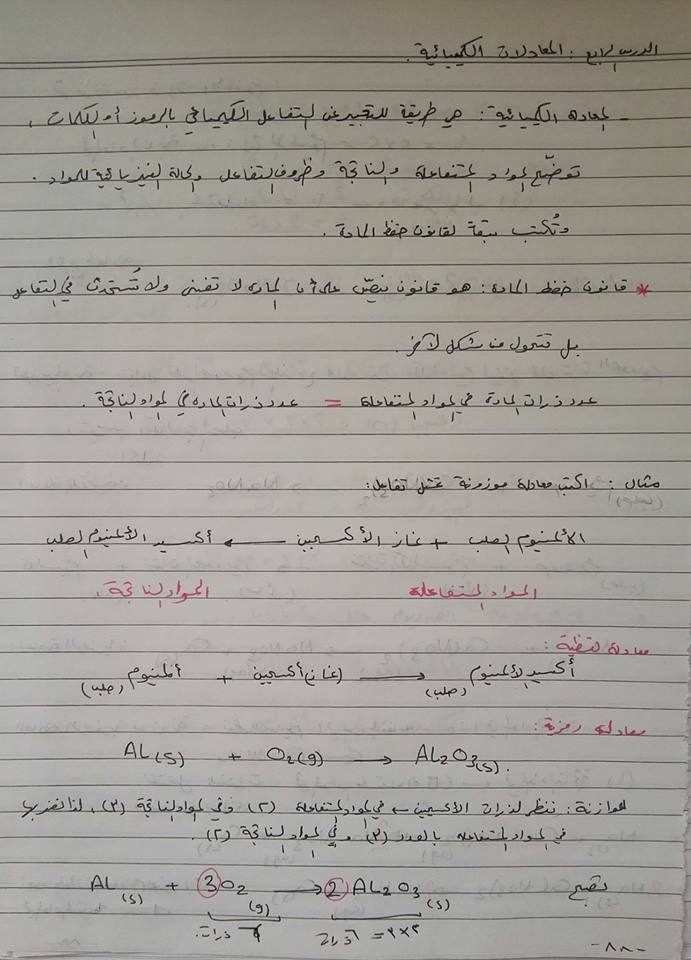 الدرس الرابع : المعادلات الكيميائية .
- المعادلة الكيميائية : هي طريقة للتعبير عن التفاعل الكيميائي بالرموز أو الكلمات ،
توضّح المواد المتفاعلة والناتجة وظروف التفاعل والحالة الفيزيائية للمواد .
وتُكتب تبعًا لقانون حفظ المادة .
* قانون حفظ المادة : هو قانون ينصّ على أن المادة لا تفنى ولا تُستحدث في التفاعل
بل تتحول من شكل لآخر .
عدد ذرات المادة في المواد المتفاعلة = عدد ذرات المادة في المواد الناتجة .
مثال : اكتب معادلة موزونة تمثل تفاعل :
الألمنيوم الصلب + غاز الأكسجين ← أكسيد الألمنيوم الصلب
المواد المتفاعلة المواد الناتجة .
معادلة لفظية :
ألمنيوم (صلب) + (غاز) أكسجين → أكسيد الألمنيوم (صلب)
معادلة رمزية :
AL(s) + O2(g) → AL2O3(s) .
للموازنة : ننظر لذرات الأكسجين ← في المواد المتفاعلة (٢) وفي المواد الناتجة (٣) ، لذا نضربها
في المواد المتفاعلة بالعدد (٣) وفي المواد الناتجة (٢) .
تصبح AL(s) + 3O2(g) → 2AL2O3(s)
٦ ذرات ٢×٣ = ٦ ذرات
-٨٨-